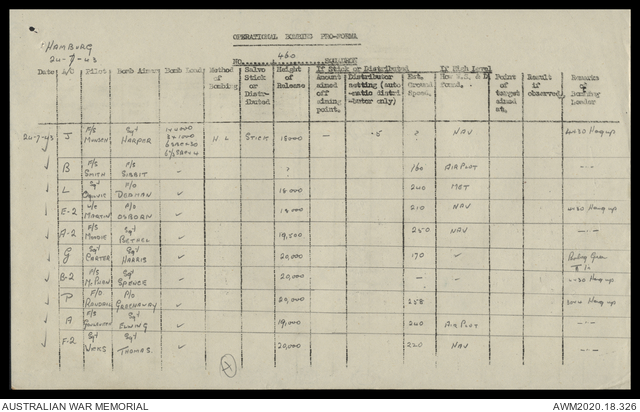 HAMBURG
24-7-43
OPERATIONAL BOMBING PRO-FORMA
NO. 460 SQUADRON
Date A/C Pilot Bomb Aimer Bomb Load Method of Bombing Salvo Stick or Distributed Height of Release If Stick or Distributed Amount aimed off aiming point. Distributor setting (automatic distributor only) Est. Ground Speed. If High Level How W.S. & D. found. Point of target aimed at. Result if observed. Remarks of Bombing Leader
24-7-43 J F/S Sgt HARPER H L STICK 18000 — .5 ? NAV 4x30 Hang up
B F/S SMITH F/S SIBBIT ✓ ? 160 AIR PLOT - - -
L Sgt F/O ✓ 18000 240 MET
E-2 W/C MARTIN F/O OSBORN ✓ 18000 210 NAV 4x30 Hang up
A-2 F/S Sgt ✓ 19,500 250 NAV - - -
G Sgt CARTER Sgt HARRIS ✓ 20,000 170 ✓
B-2 F/S Sgt SPENCE ✓ 20,000 — — Hang up
P F/O RANDALL P/O GREENAWAY ✓ 20,000 258 Hang up
A F/S Sgt EWING ✓ 19,000 240 AIR PLOT
F-2 Sgt Sgt THOMAS ✓ 20,000 220 NAV - - -
AUSTRALIAN WAR MEMORIAL
AWM2020.18.326